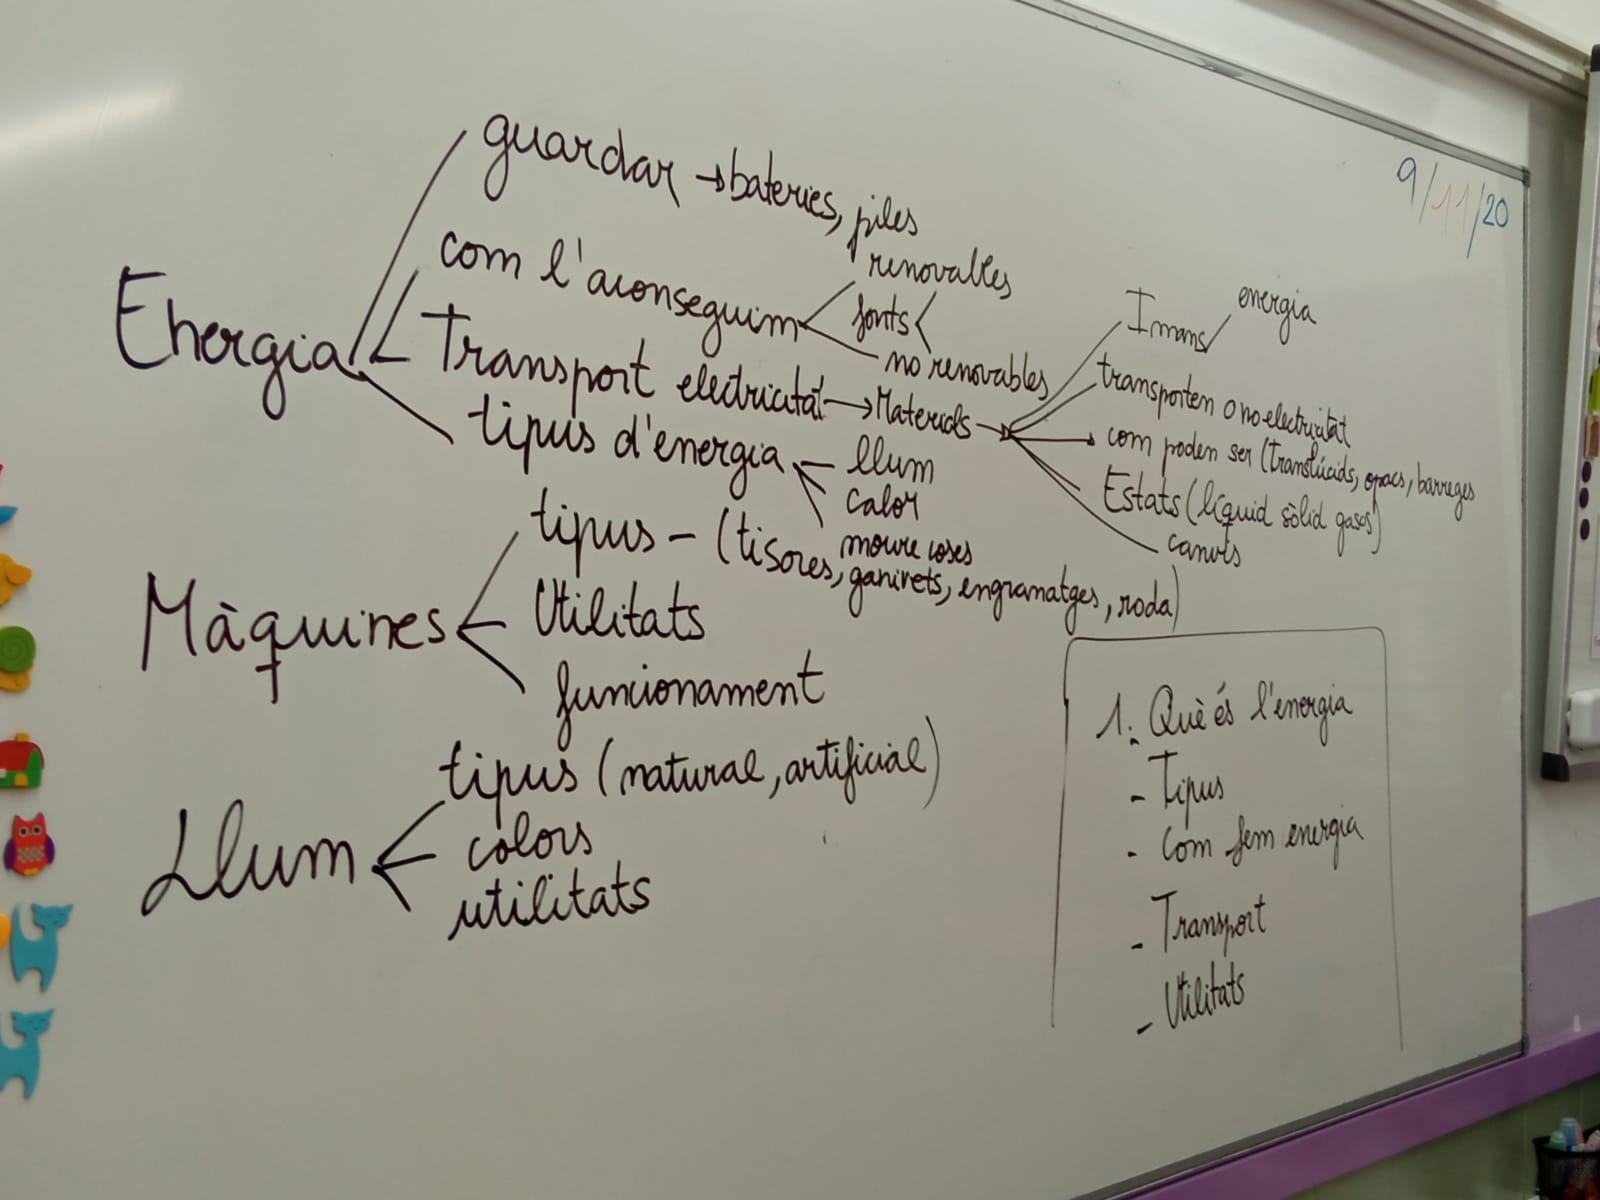 9/11/20
Energia
guardar → bateries, piles
com l'aconseguim
fonts
renovables
no renovables
Transport electricitat → Materials
Imans
energia
transporten o no electricitat
com poden ser (translúcids, opacs, barreges
Estats (líquid sòlid gasós)
canvis
tipus d'energia
llum
calor
moure coses
Màquines
tipus - (tisores, ganivets, engranatges, roda)
Utilitats
funcionament
Llum
tipus (natural, artificial)
colors
utilitats
1. Què és l'energia
- Tipus
- Com fem energia
- Transport
- Utilitats